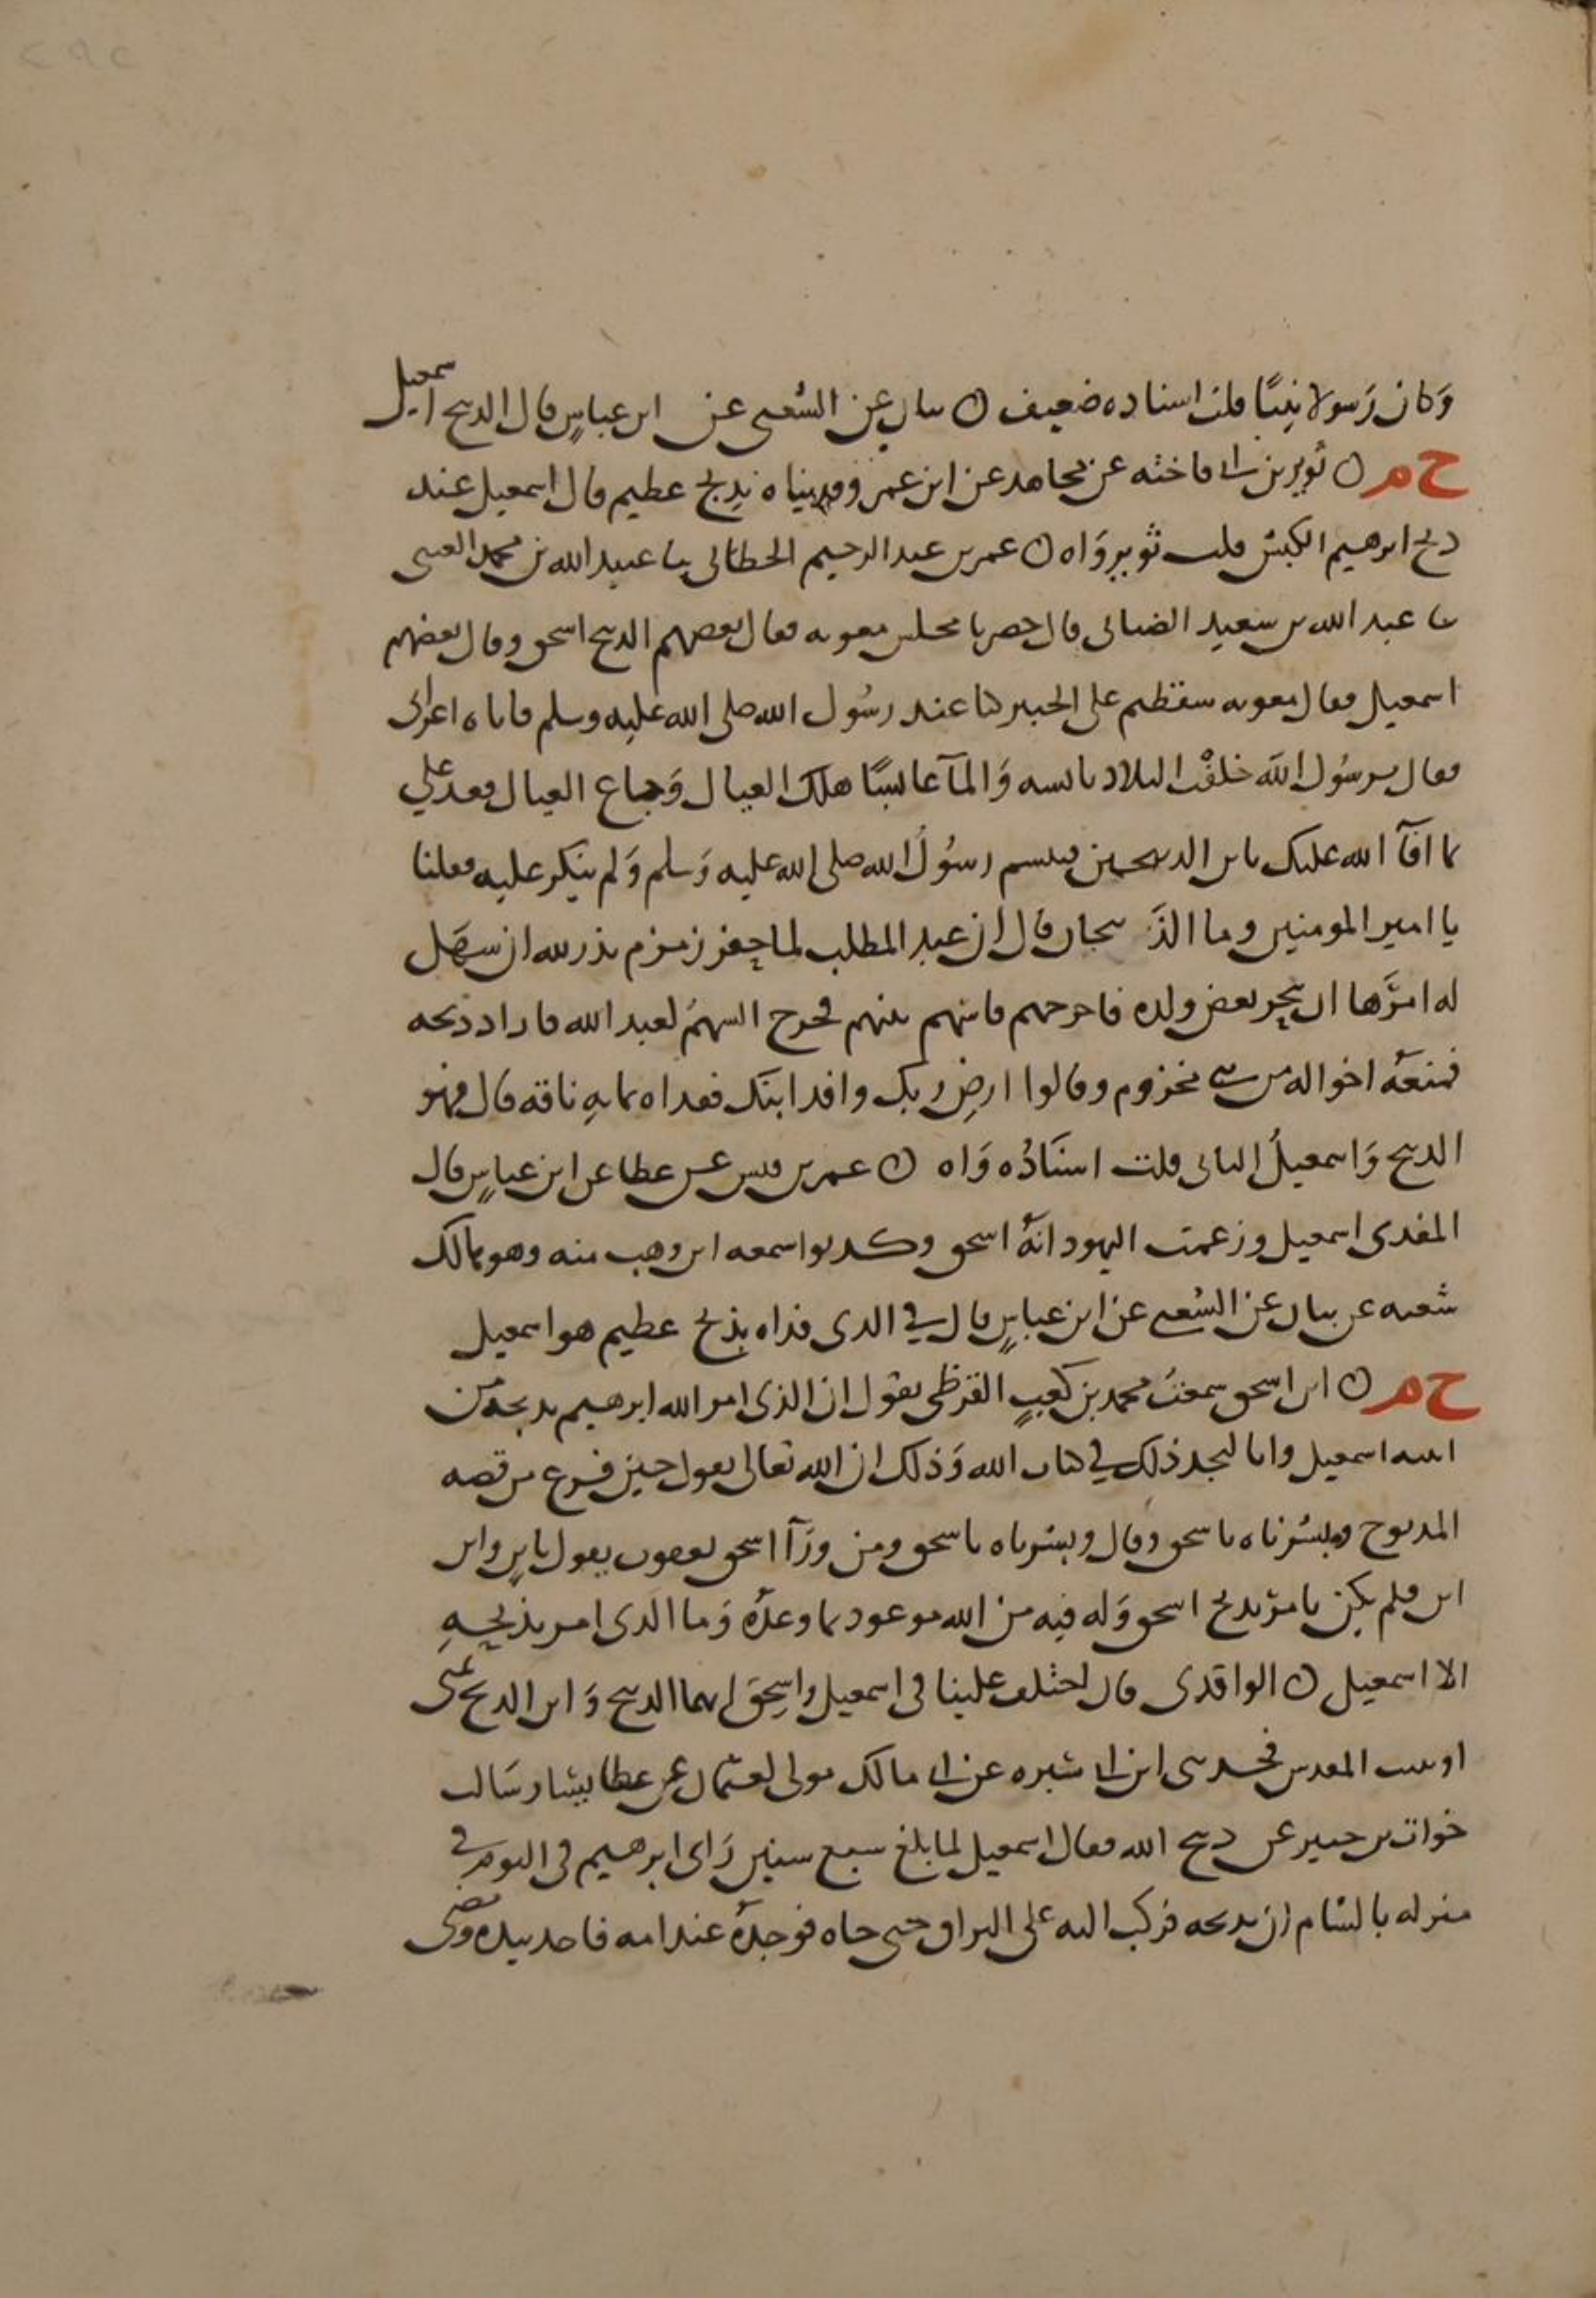 وَكان رَسولا نبيًّا قلت اسناده ضعيف ن بيان عن الشعبى عن ابن عباسٍ قال الذبيح اسمعيل
خ م ن ثوير بن ابى فاخته عن مجاهد عن ابن عمر وفديناه بذبح عظيم قال اسمعيل عند
ذبح ابرهيم الكبش قلت ثوير وَاه ن عمر بن عبد الرحيم الخطابى ثنا عبيد الله بن محمد العتبى
ثنا عبد الله بن سعيد الصنابحى قال حضرنا مجلس معويه فقال بعضهم الذبيح اسحق وقال بعضهم
اسمعيل فقال معويه سقطتم على الخبير كنا عند رسُول الله صلى الله عليه وسلم فاتاه اعرابى
فقال يرسُول الله خلفْت البلاد يابسه وَالمآ عابسًا هلك العيال وَضاع العيال فعد علي
مما افآ الله عليك يابن الذبيحين فتبسم رسُولُ الله صلى الله عليه وَسلم وَلم ينكر عليه فقلنا
يا امير المومنين وما الذَبيحان قال ان عبد المطلب لما حفر زمزم نذر لله ان سهَل
له امرَها ان ينحر بعض ولده فاخرجهم فاسهم بينهم فخرج السهمُ لعبد الله فاراد ذبحه
فمنعهُ اخواله من بنى مخزوم وقالوا ارضِ ربك وافد ابنك ففداه بمايهِ ناقه قال فهو
الذبيح وَاسمعيلُ الثانى قلت اسنَادُه وَاه ن عمر بن قيس عن عطا عن ابن عباسٍ قال
المفدى اسمعيل وزعمت اليهود انهُ اسحق وكذبوا سمعه ابن وهب منه وهو هالك
شعبه عن بيان عن الشعبى عن ابن عباسٍ قال في الذى فداه بذبح عظيم هو اسمعيل
خ م ن ابن اسحق سمعتُ محمد بن كعبٍ القرظى يقول ان الذى امر الله ابرهيم بذبحه من
ابنيه اسمعيل وانا لنجد ذلك في كتاب الله وَذلك ان الله تعالى يقول حين فرغ من قصه
المذبوح وبشرناه باسحق وقال وبشرناه باسحق ومن ورَآ اسحق يعقوب يقول بابنٍ وابن
ابن فلم يكن يامرُ بذبح اسحق وَله فيه من الله موعود بما وعدُه وَما الذى امر بذبحِهِ
الا اسمعيل ن الواقدى قال اختلف علينا فى اسمعيل واسحق ايهما الذبيح وَاين الذبح بمنى
او بيت المقدس فحدثنى ابن ابى سبره عن ابى مالك مولى لعثمان عن عطا بن يسار سَالت
خوات بن جبير عن ذبيح الله فقال اسمعيل لما بلغ سبع سنين رَاى ابرهيم فى النوم في
منزله بالشام ان يذبحه فركب اليه على البراق حتى جاه فوجدهُ عند امه فاخذ بيده ومضى